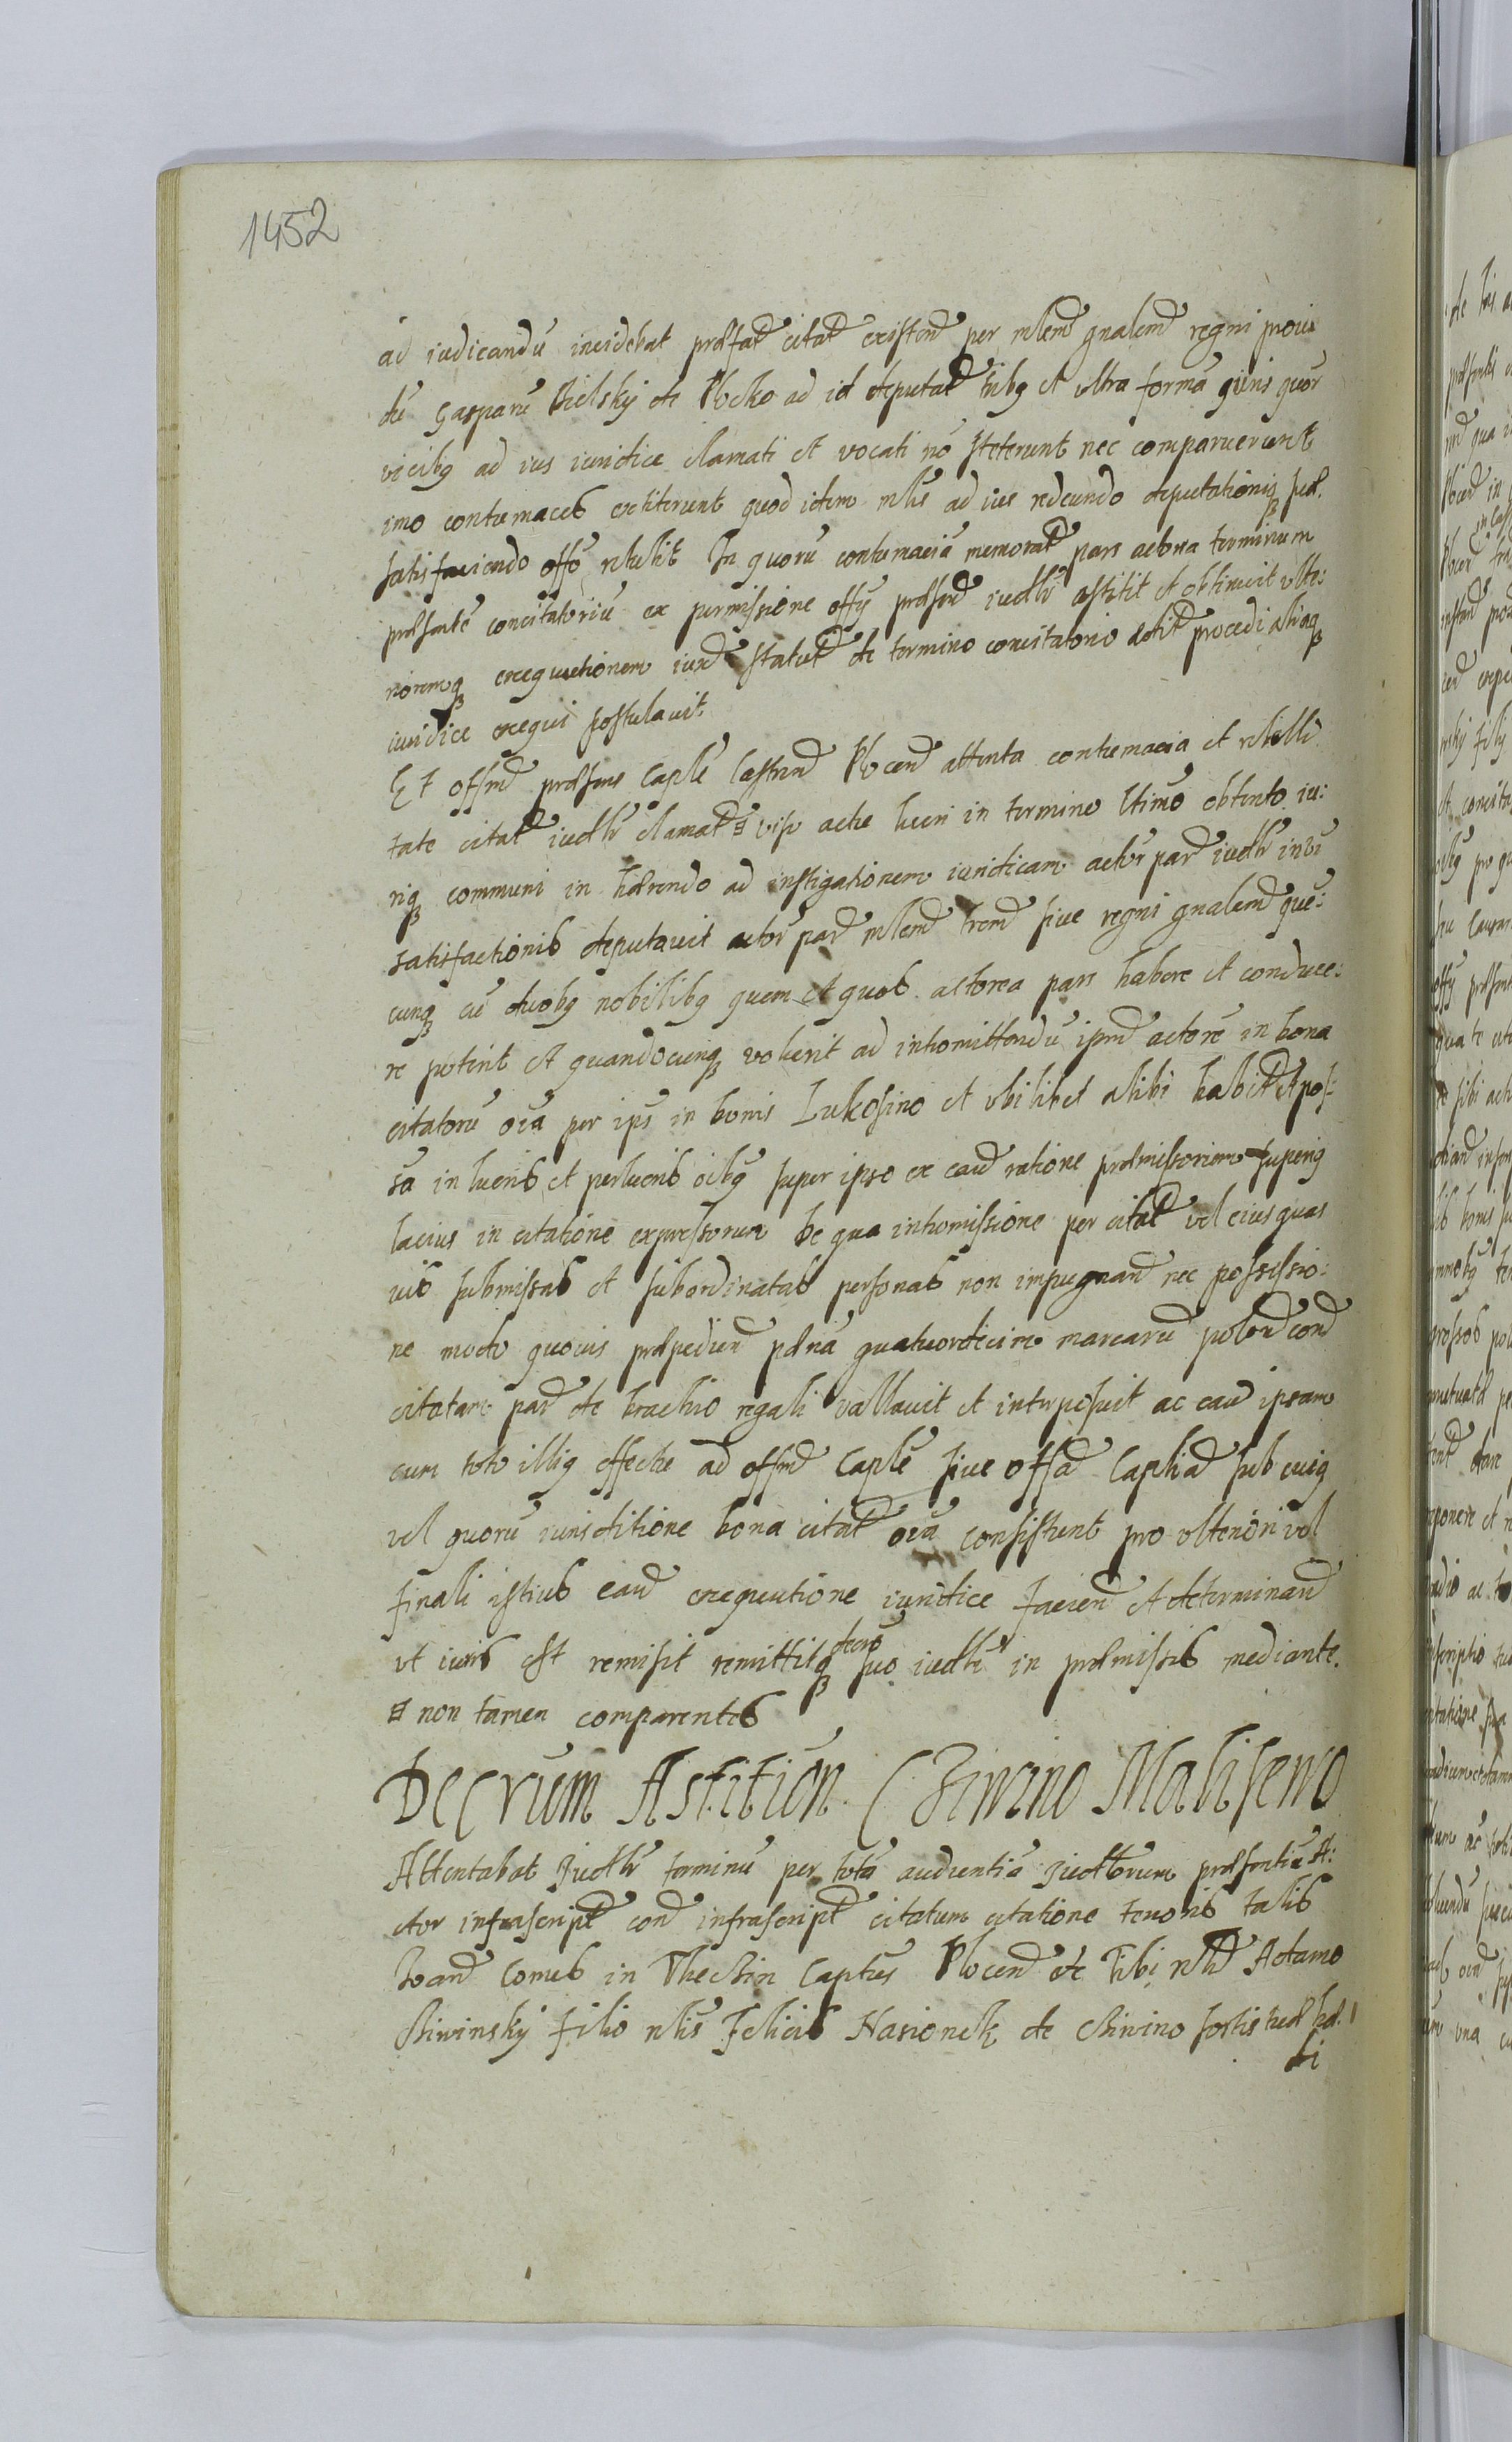 1452
ad iudicandū incidebat praefat citat existend per mlem gnalem regni provi
dū Gasparū Bielsky de Plocko ad id deputat tribq et ultra formā iuris quor
vicibq ad ius iuridice clamati et vocati nō steterunt nec comparuerunt
imo contumaces extiterunt quod idem mlis ad ius redeundo deputationiq suae
satisfaciendo offō retulit In quorū contumaciā memorat pars actorea terminum
praesentē concitatoriū ex permissione offij praesend iudlr astitit et obtinuit ulte:
rioremq exequutionem iuxt statut de termino concitatorio edit procedi aliaq
iuridice exequi postulavit
Et offmd praesens Caplē Castrend Plocend attenta contumacia et rebelli
tate citat iudlr clamat viso actu lucri in termino ltimō obtento iu:
riq communi in haerendo ad instigationem iuridicam actor par iudlr in vi
satisfactionis deputavit actor par mlem trem sive regni gnalem quē:
cunq cū duobq nobilibq quem et quos actorea pars habere et conduce:
re poterit et quandocunq voluerit ad intromittendū ipmd actorē in bona
citatorū oīa per ips in bonis Lukosino et ubilibet alibi habit et pos:
sa in lucris et perlucris oībq super ipso ex ead ratione praemissorum superiq
lacius in citatione expressorum De qua intromissione per citat vel eius quas
vis submissas et subordinatas personas non impugnand nec possessio:
ne modo quovis praepediend paenā quatuordecim marcarū polond cond
citatam par de brachio regali vallavit et interposuit ac ead ipsam
cum toto illiq effectu ad offmd Caplē sive offad Capliad sub cuiq
vel quorū iurisditione bona citat oīa consistunt pro ulteriori vel
finali istius ead exequutione iuridice faciend et determinand
ut iuris est remisit remittitq decrō suo iudlr in praemissis mediante.
non tamen comparentes
Decrūm Astitiōn Chiwino Malisewo
Attentabat Iudlr terminū per totā audientiā Iudlorum praesentiū A:
ctor infrascript cond infrascript citatum citatione tenoris talis
Ioand Comes in Thecżin Captūs Plocend etc Tibi nld Adamo
Chiwinsky filio nlis Felicis Nasionek de Chiwino sortis tuae hae:
di